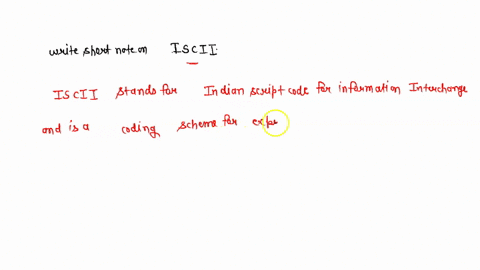 write short note on ISCII.
ISCII stands for Indian script code for information Interchange
and is a coding scheme for